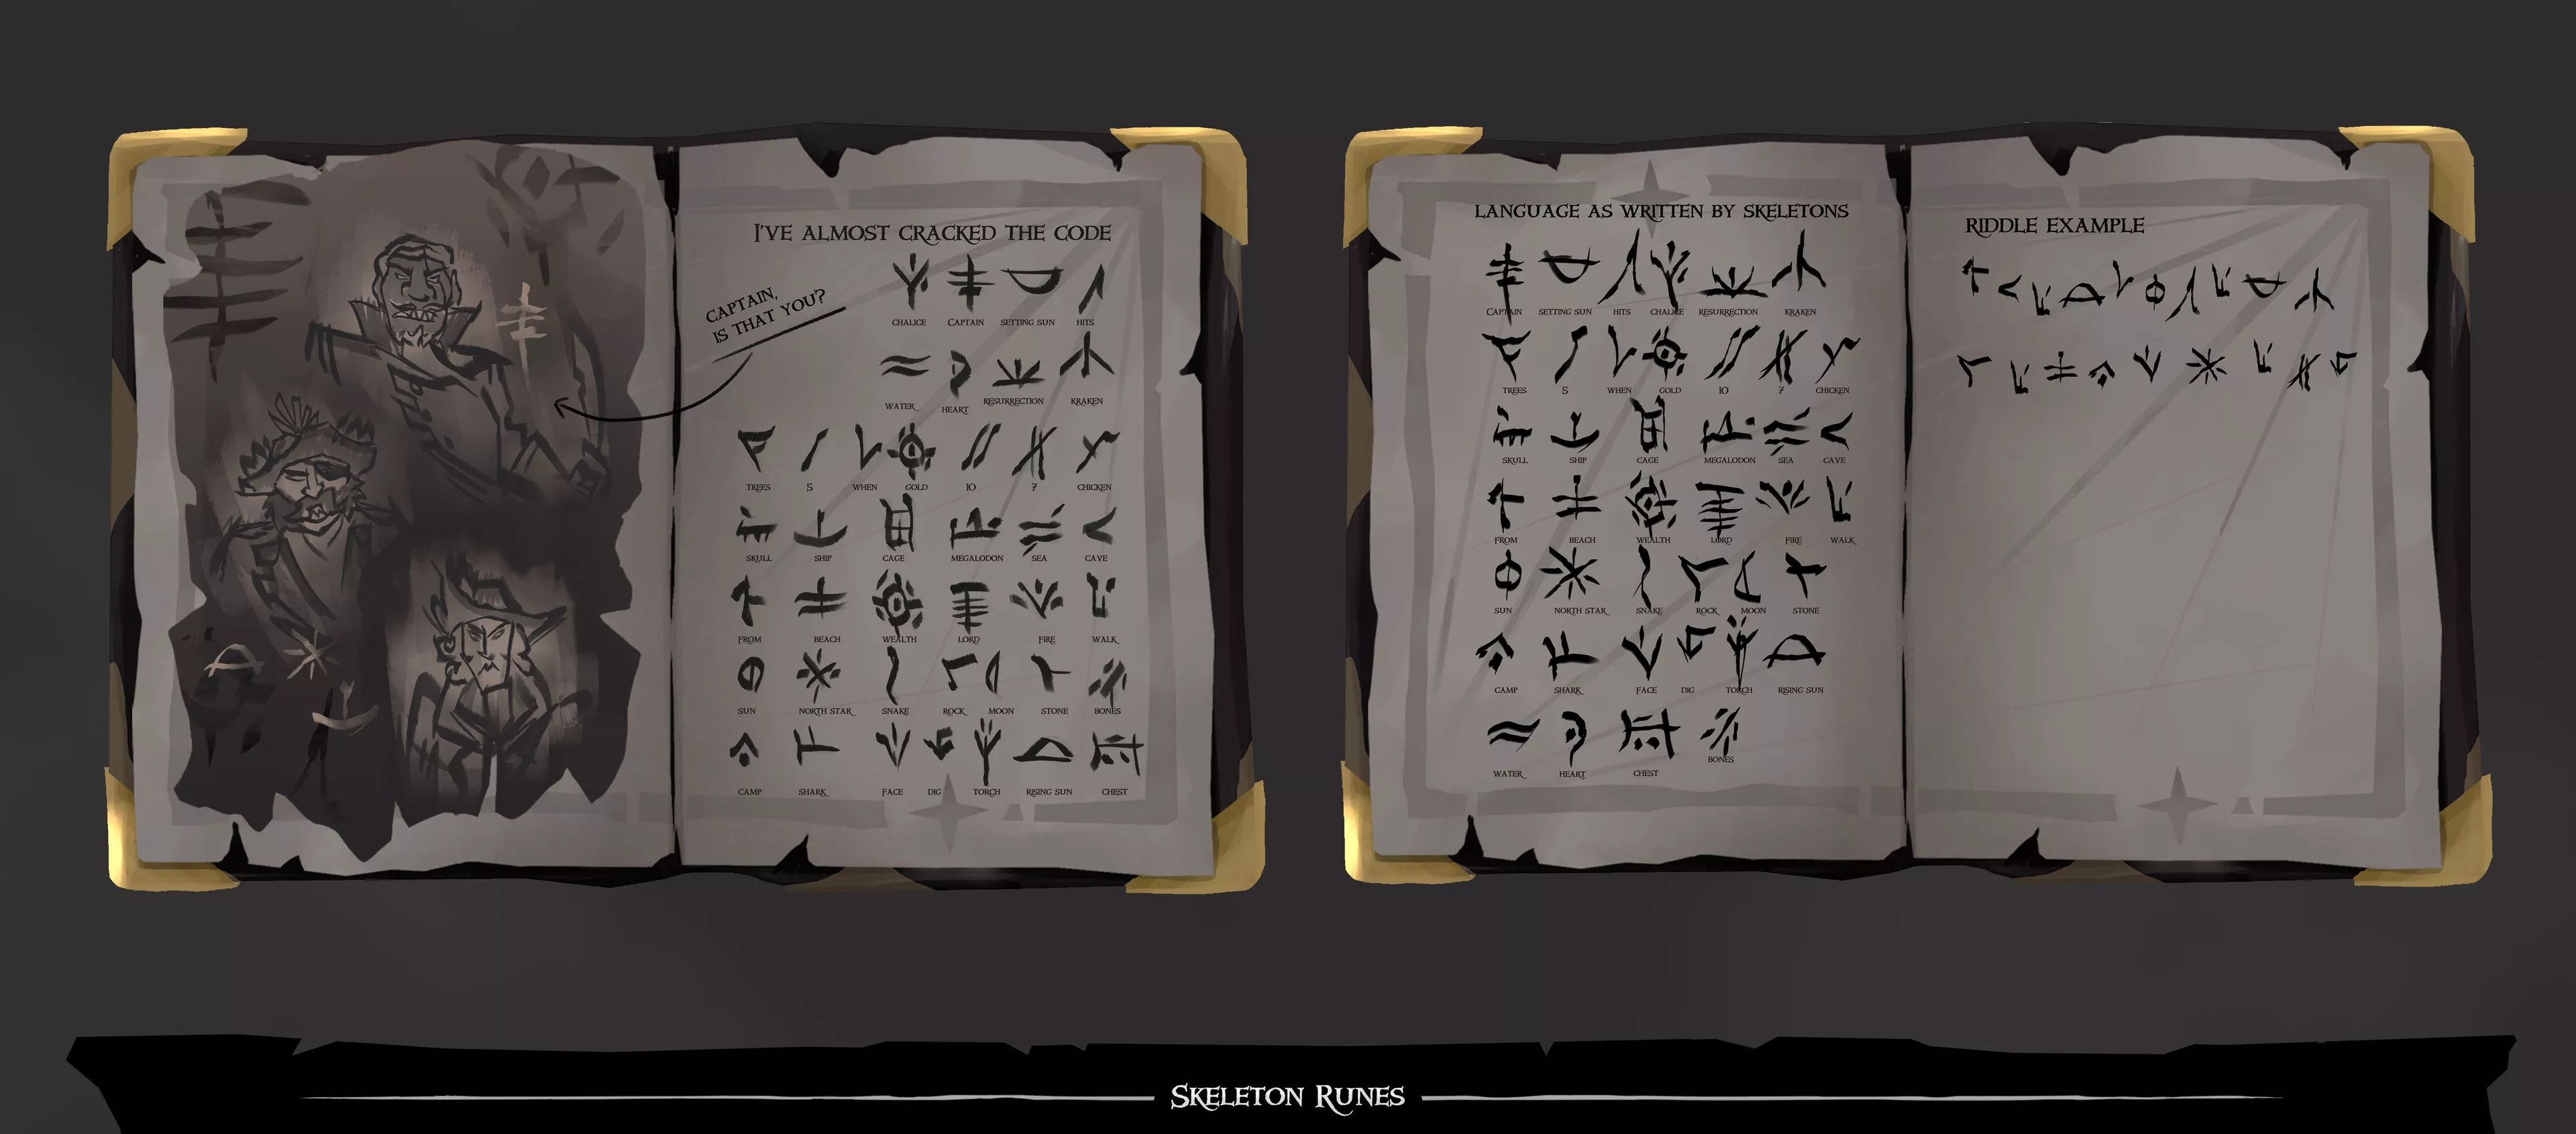 I'VE ALMOST CRACKED THE CODE
CAPTAIN,
IS THAT YOU?
CHALICE CAPTAIN SETTING SUN HITS
WATER HEART RESURRECTION KRAKEN
TREES 5 WHEN GOLD 10 7 CHICKEN
SKULL SHIP CAGE MEGALODON SEA CAVE
FROM BEACH WEALTH LORD FIRE WALK
SUN NORTH STAR SNAKE ROCK MOON STONE BONES
CAMP SHARK FACE DIG TORCH RISING SUN CHEST
LANGUAGE AS WRITTEN BY SKELETONS
CAPTAIN SETTING SUN HITS CHALICE RESURRECTION KRAKEN
TREES 5 WHEN GOLD 10 7 CHICKEN
SKULL SHIP CAGE MEGALODON SEA CAVE
FROM BEACH WEALTH LORD FIRE WALK
SUN NORTH STAR SNAKE ROCK MOON STONE
CAMP SHARK FACE DIG TORCH RISING SUN
WATER HEART CHEST BONES
RIDDLE EXAMPLE
SKELETON RUNES